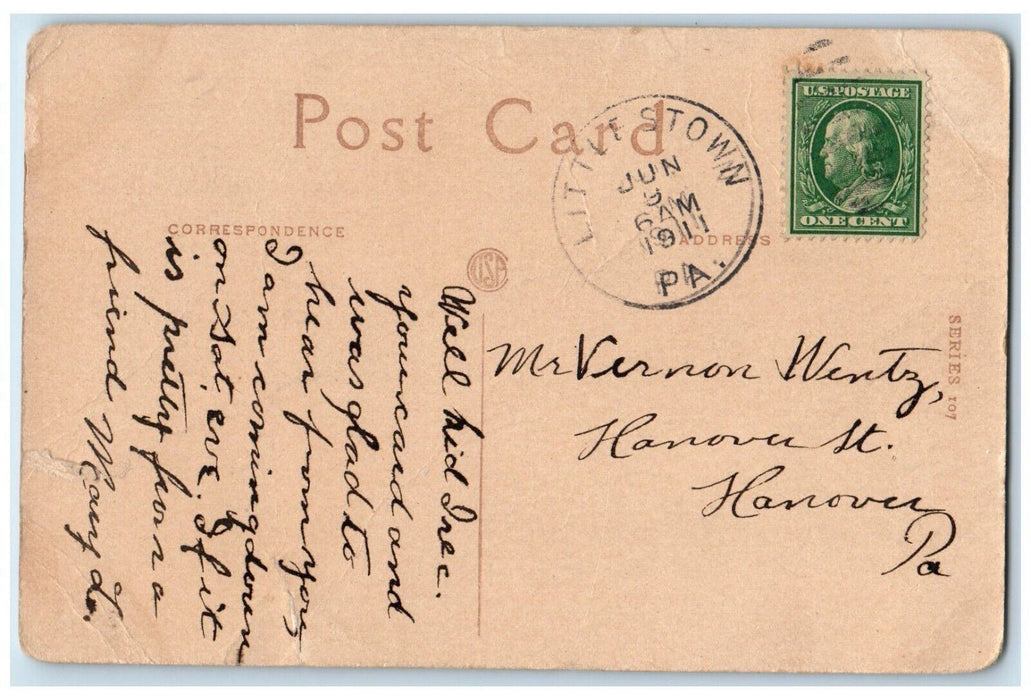 Post Card
U.S. POSTAGE
ONE CENT
LITTLESTOWN
JUN
9
6 AM
1911
PA.
CORRESPONDENCE
ADDRESS
USA
SERIES 107
Mr Vernon Wentz,
Hanover St.
Hanover
Pa
Well kid I rec.
your card and
was glad to
hear from you
I am coming down
on Sat, eve. If it
is pretty from a
friend Mary